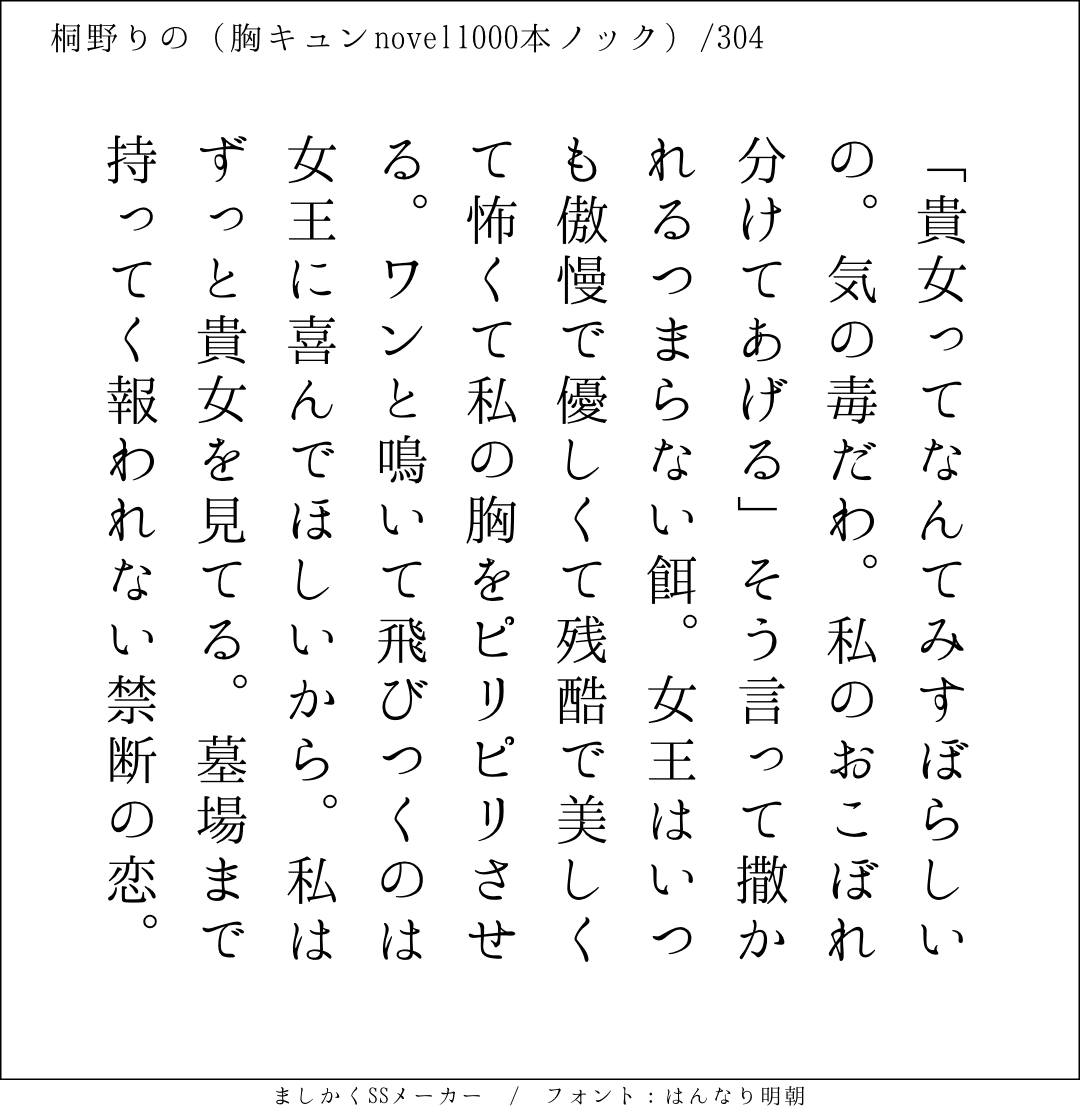 桐野りの（胸キュンnovel1000本ノック）/304
「貴女ってなんてみすぼらしい
の。気の毒だわ。私のおこぼれ
分けてあげる」そう言って撒か
れるつまらない餌。女王はいつ
も傲慢で優しくて残酷で美しく
て怖くて私の胸をピリピリさせ
る。ワンと鳴いて飛びつくのは
女王に喜んでほしいから。私は
ずっと貴女を見てる。墓場まで
持ってく報われない禁断の恋。
ましかくSSメーカー　/　フォント：はんなり明朝